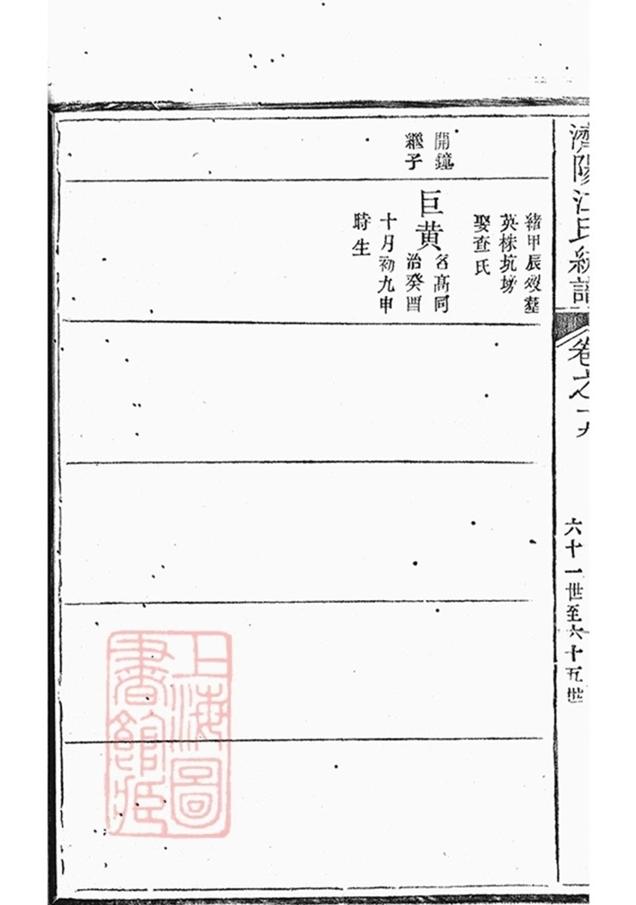 濟陽江氏統譜
卷之十九
六十一世至六十五世
緒甲辰歿塟
英株坑塝
娶查氏
開鐘
繼子
巨黃
名高同
治癸酉
十月初九申
時生
上海圖
書館藏